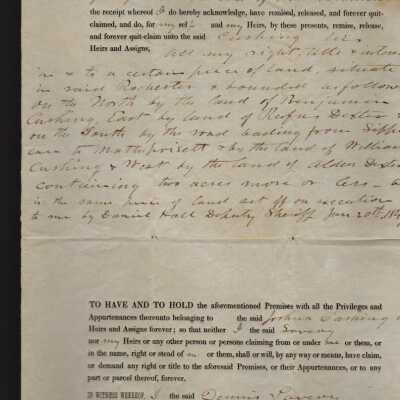 the receipt whereof I do hereby acknowledge, have remised, released, and forever quit-
claimed, and do, for my self and my Heirs, by these presents, remise, release,
and forever quit-claim unto the said Cushing his
Heirs and Assigns,
all my right, title &
in & to a certain piece of land, situate
in said Rochester & bounded as follow
on the North by the land of Benjamin
Cushing, East by land of Rufus Dexter
on the South by the road leading from Sippi
can to Mattapoisett & by the land of William
Cushing & West by the land of Alden Dexter
containing two acres more or less
is the same piece of land set off on execution
to me by Daniel Hall Deputy Sheriff Jan 20th 184
TO HAVE AND TO HOLD the aforementioned Premises with all the Privileges and
Appurtenances thereunto belonging to the said Joshua Cushing
Heirs and Assigns forever; so that neither I the said Savery
nor my Heirs or any other person or persons claiming from or under me or them, or
in the name, right or stead of me or them, shall or will, by any way or means, have claim,
or demand any right or title to the aforesaid Premises, or their Appurtenances, or to any
part or parcel thereof, forever.
IN WITNESS WHEREOF, I the said Dennis Savery